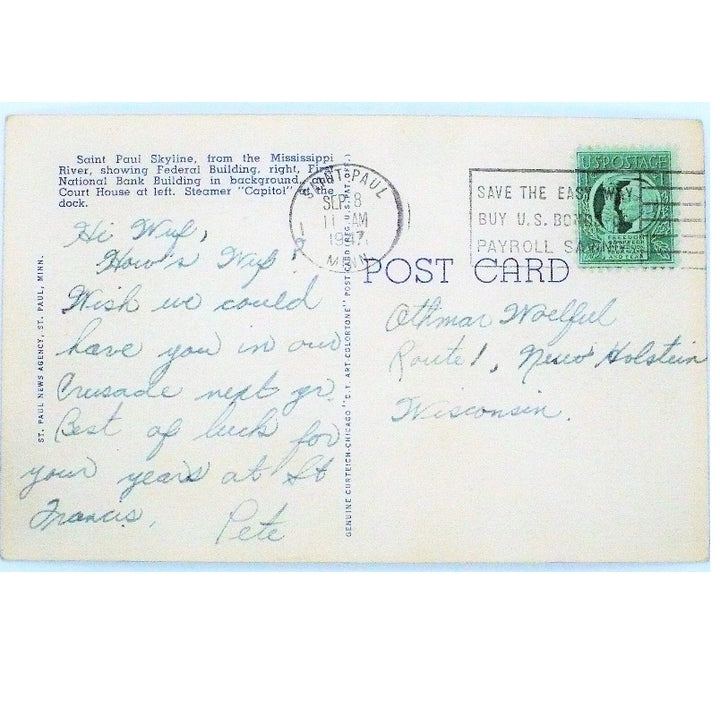 Saint Paul Skyline, from the Mississippi
River, showing Federal Building, right, First
National Bank Building in background, and
Court House at left. Steamer "Capitol" at the
dock.
SAINT PAUL
SEP 8
11 AM
1947
MINN.
SAVE THE EASY WAY
BUY U.S. BONDS
PAYROLL SAVINGS
U.S. POSTAGE
1
POST CARD
Hi Wuf,
How's Wuf?
Wish we could
have you in our
Crusade next yr.
Best of luck for
your years at St
Francis,
Pete
Othmar Woelful
Route 1, New Holstein
Wisconsin.
ST. PAUL NEWS AGENCY, ST. PAUL, MINN.
GENUINE CURTEICH-CHICAGO "C.T. ART-COLORTONE" POST CARD (REG. U.S. PAT. OFF.)